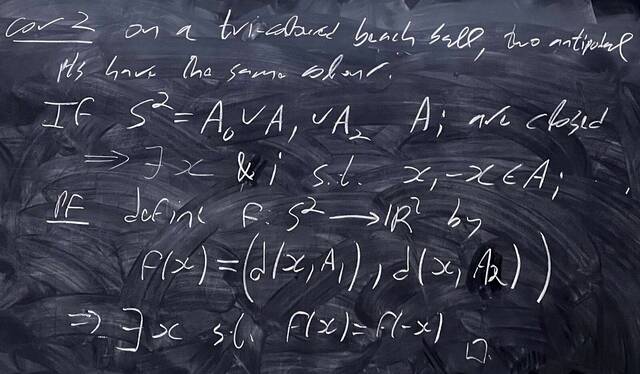 Cor 2 on a tri-coloured beach ball, two antipodal
pts have the same colour.
If S² = A₀ ∪ A₁ ∪ A₂ Aᵢ are closed
⇒ ∃ x & i s.t. x, -x ∈ Aᵢ
Pf define f: S² → ℝ² by
f(x) = (d(x, A₁), d(x, A₂))
⇒ ∃ x s.t. f(x) = f(-x) □.